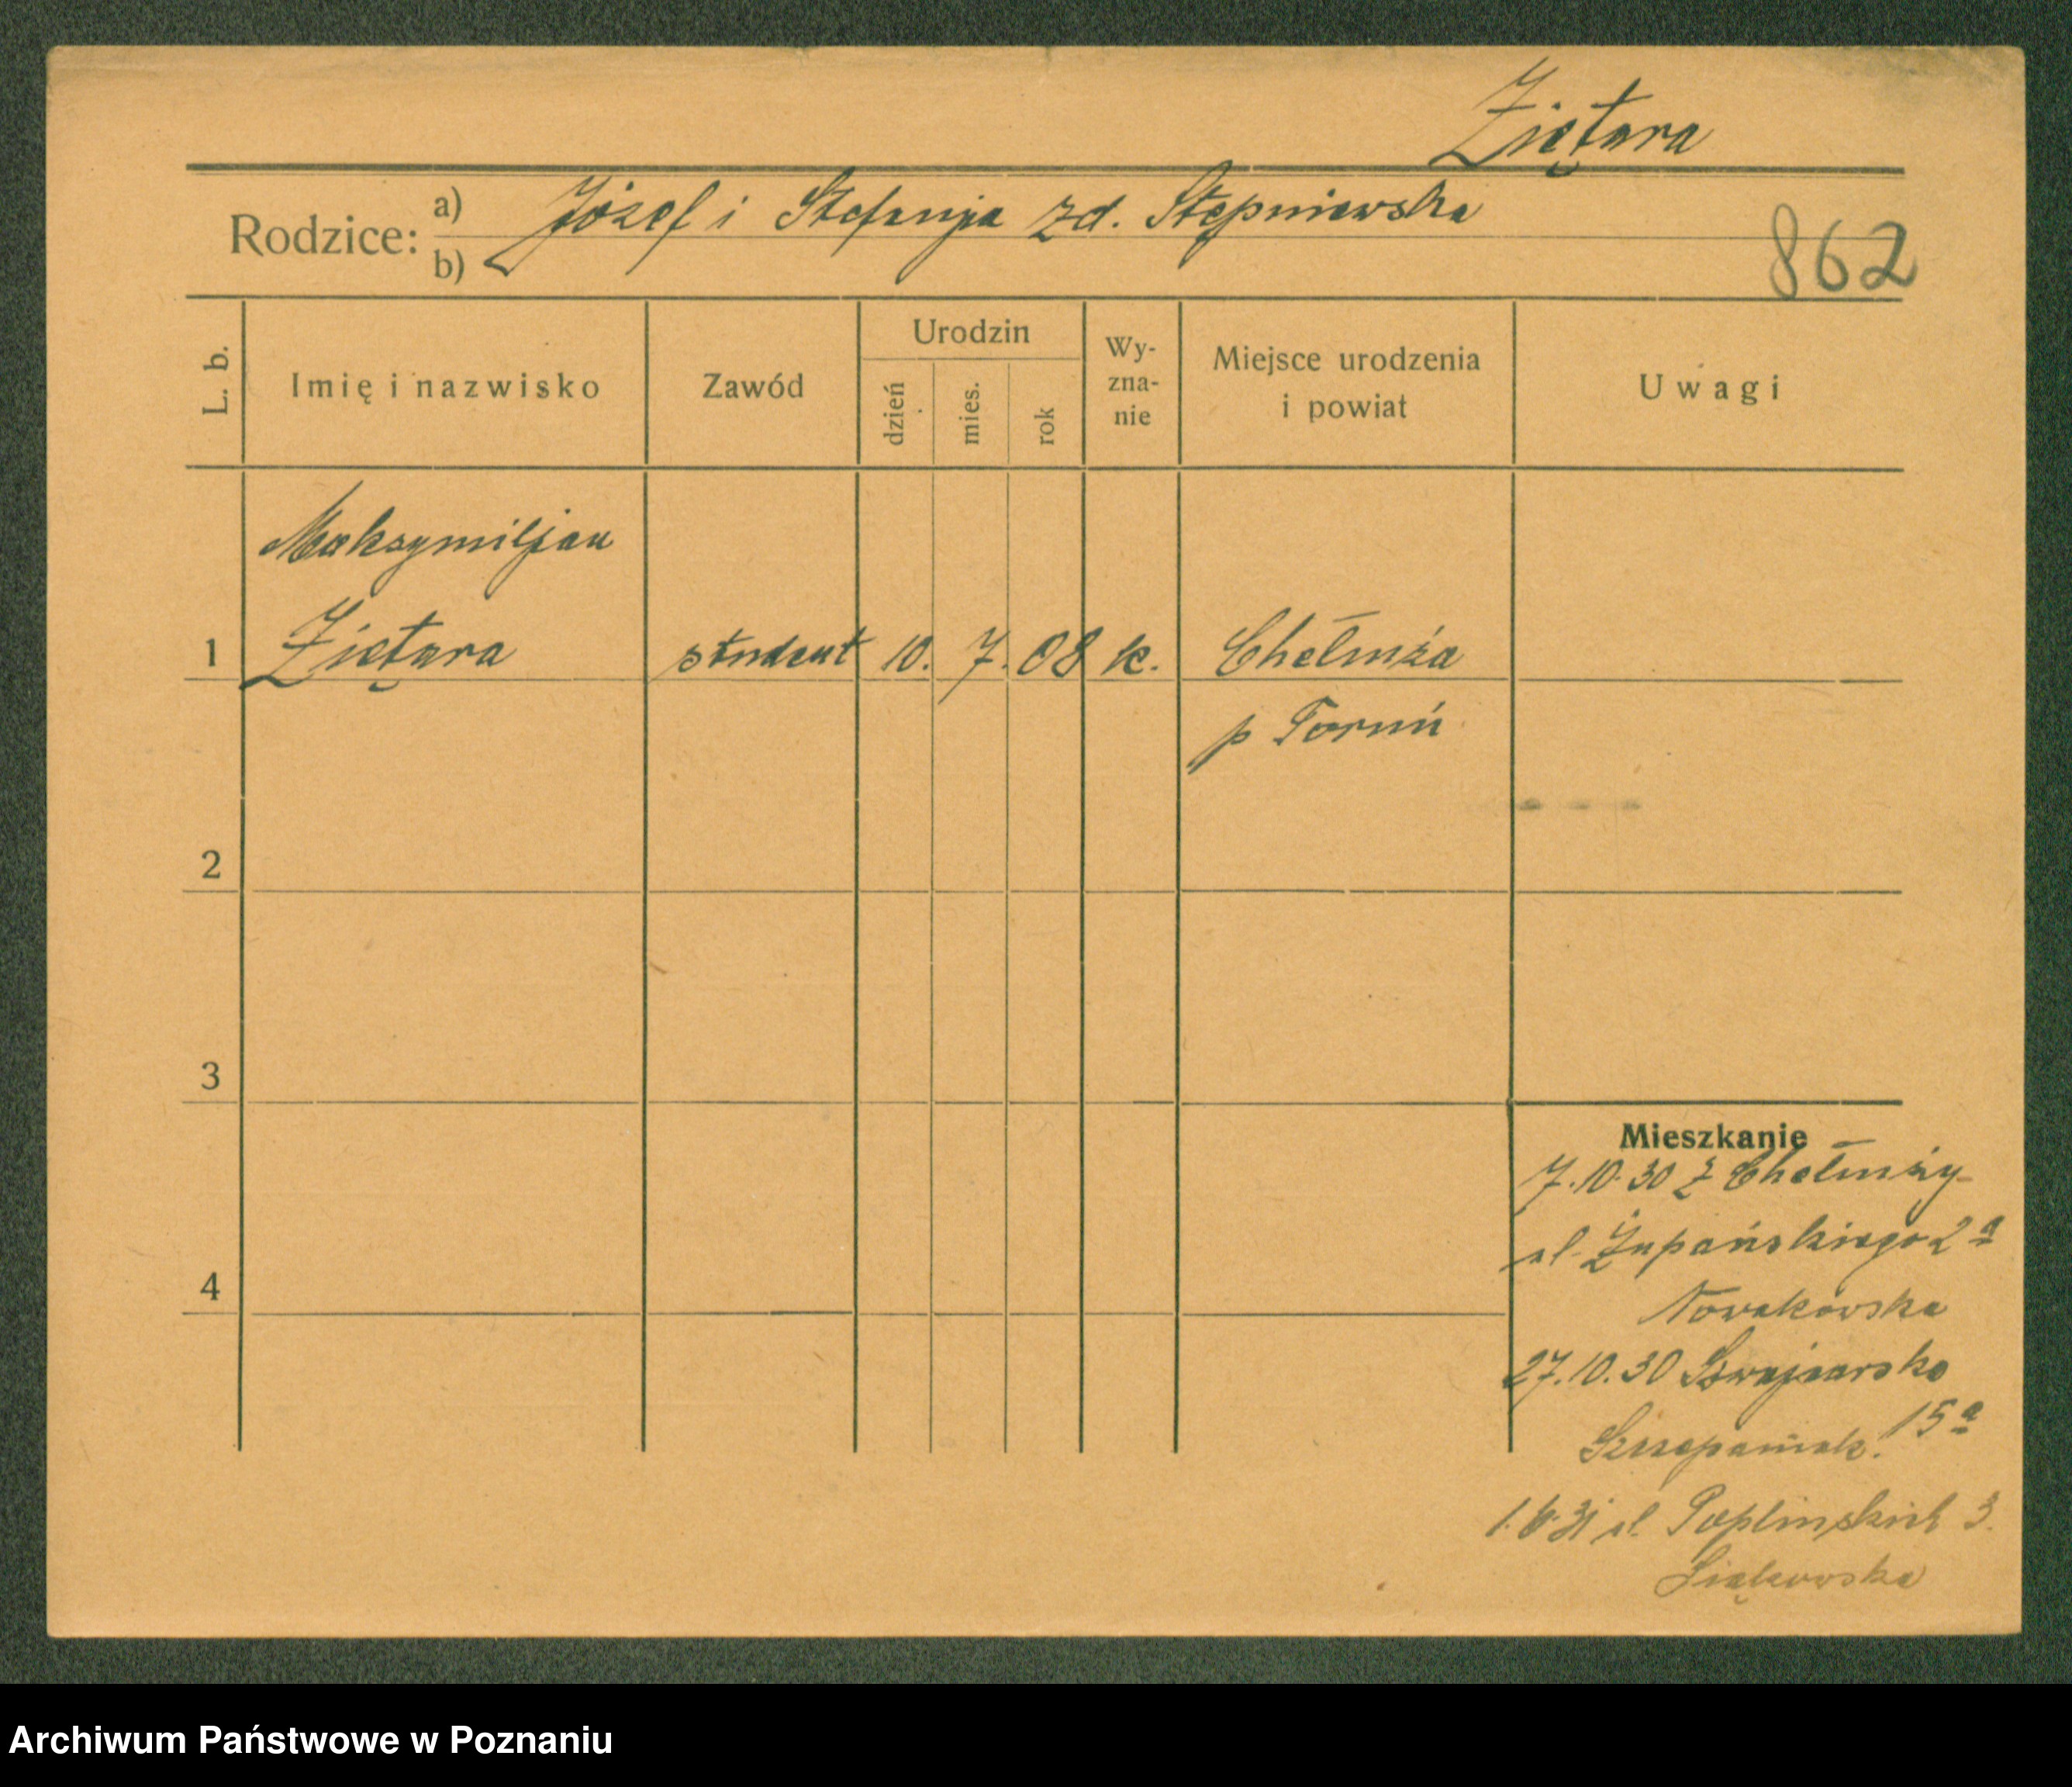 Ziętara
Rodzice: a) Józef i Stefanja zd. Stępniewska
b)
862
L. b. Imię i nazwisko Zawód Urodzin dzień mies. rok Wy- zna- nie Miejsce urodzenia i powiat Uwagi
Maksymiljan
1 Ziętara student 10. 7. 08 k. Chełmża
p Toruń
2
3
Mieszkanie
7.10.30 z Chełmży
ul. Żupańskiego 2a
4
Nowakowska
27.10.30 Szwajcarska
15a
Szczepaniak.
1.6.31 ul. Poplinskich 3.
Archiwum Państwowe w Poznaniu